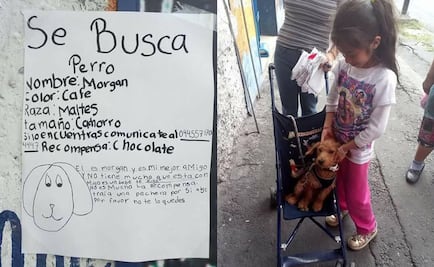 Se Busca
Perro
Nombre: Morgan
Color: Cafe
Raza: Maltes
Tamaño: Cachorro
Si lo encuentras comunicate al
Recompensa: Chocolate
El es morgan y es mi mejor amigo
NO tiene mucho que esta con
NO es Mucha la recompensa
traia una pechera por si
Por favor no te lo quedes